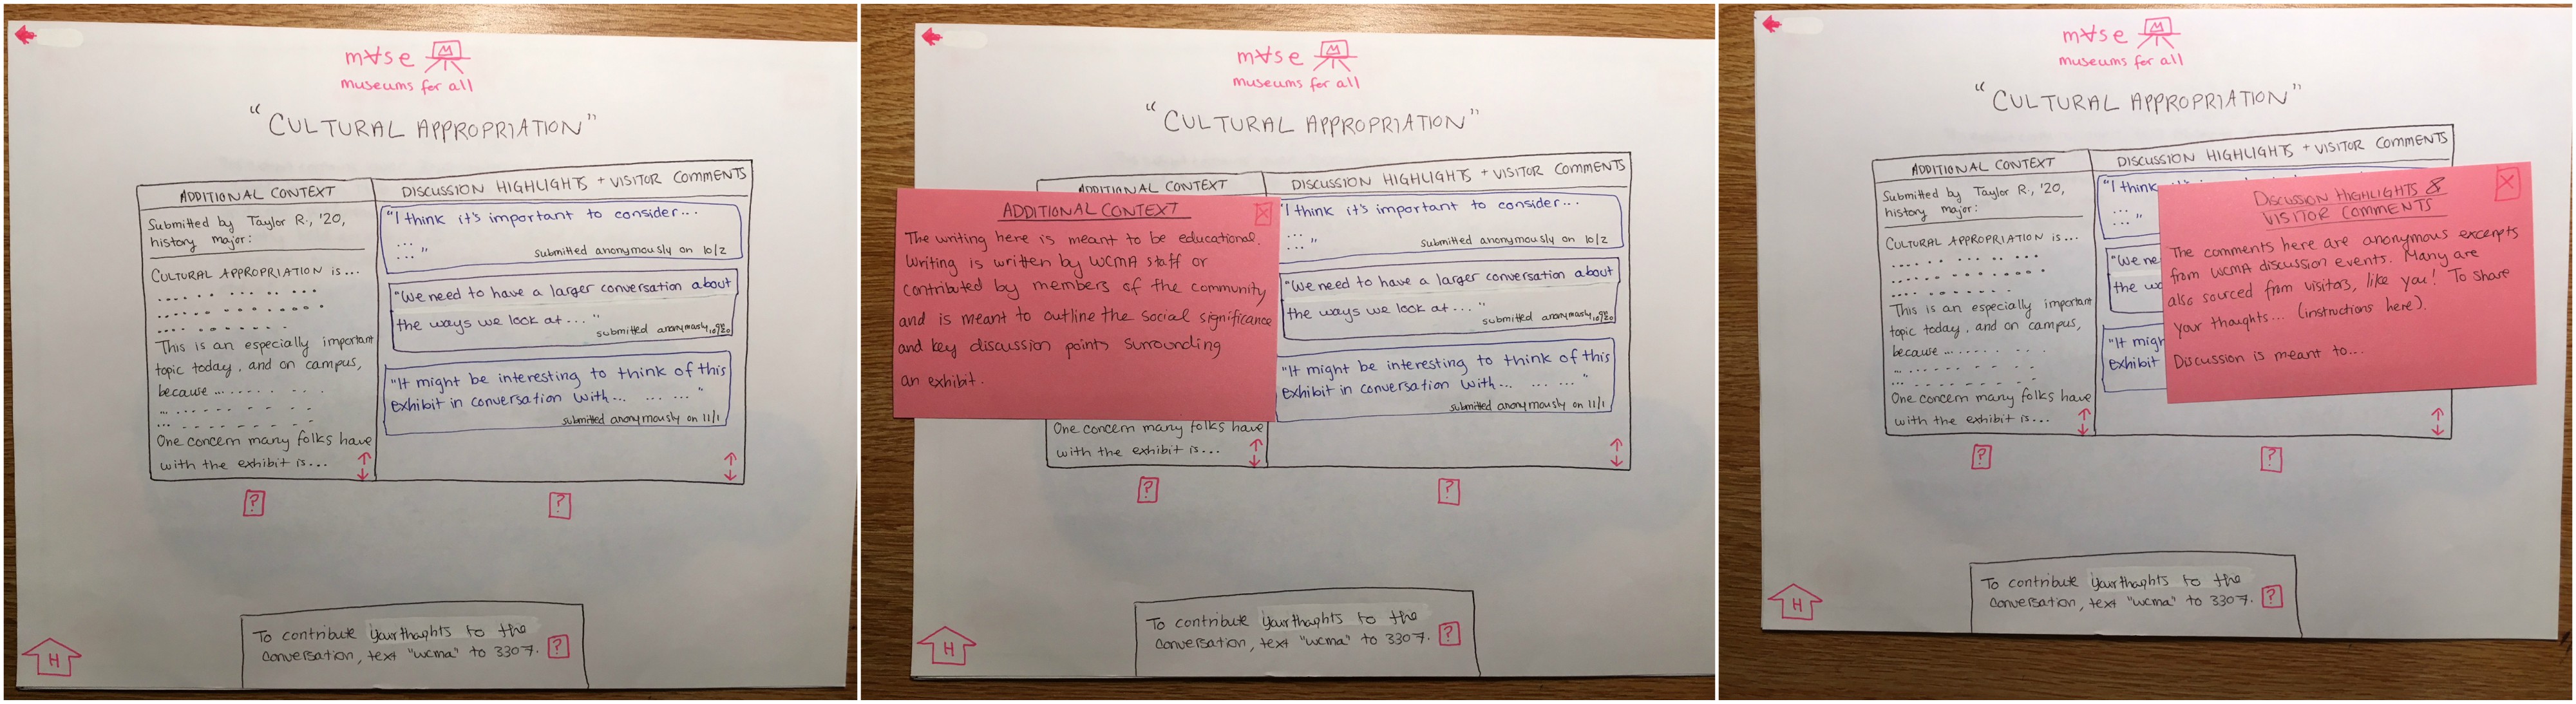 m∀se M
museums for all
"CULTURAL APPROPRIATION"
ADDITIONAL CONTEXT
Submitted by Taylor R., '20,
history major:
CULTURAL APPROPRIATION is...
This is an especially important
topic today, and on campus,
because ...
One concern many folks have
with the exhibit is...
?
DISCUSSION HIGHLIGHTS + VISITOR COMMENTS
"I think it's important to consider...
... "
submitted anonymously on 10/2
"We need to have a larger conversation about
the ways we look at ... "
submitted anonymously,
"It might be interesting to think of this
exhibit in conversation with... ... ... "
submitted anonymously on 11/1
?
To contribute your thoughts to the
conversation, text "wcma" to 3307. ?
H
m∀se M
museums for all
"CULTURAL APPROPRIATION"
ADDITIONAL CONTEXT
ADDITIONAL CONTEXT X
The writing here is meant to be educational.
Writing is written by WCMA staff or
contributed by members of the community
and is meant to outline the social significance
and key discussion points surrounding
an exhibit.
One concern many folks have
with the exhibit is...
?
DISCUSSION HIGHLIGHTS + VISITOR COMMENTS
"I think it's important to consider...
... "
submitted anonymously on 10/2
"We need to have a larger conversation about
the ways we look at ... "
submitted anonymously,
"It might be interesting to think of this
exhibit in conversation with... ... ... "
submitted anonymously on 11/1
?
To contribute your thoughts to the
conversation, text "wcma" to 3307. ?
H
m∀se M
museums for all
"CULTURAL APPROPRIATION"
ADDITIONAL CONTEXT
Submitted by Taylor R., '20,
history major:
CULTURAL APPROPRIATION is...
This is an especially important
topic today, and on campus,
because ...
One concern many folks have
with the exhibit is...
?
DISCUSSION HIGHLIGHTS + VISITOR COMMENTS
"I think
... "
"We ne
the wa
"It migh
exhibit
DISCUSSION HIGHLIGHTS & X
VISITOR COMMENTS
The comments here are anonymous excerpts
from WCMA discussion events. Many are
also sourced from visitors, like you! To share
your thoughts... (instructions here).
Discussion is meant to...
?
To contribute your thoughts to the
conversation, text "wcma" to 3307. ?
H